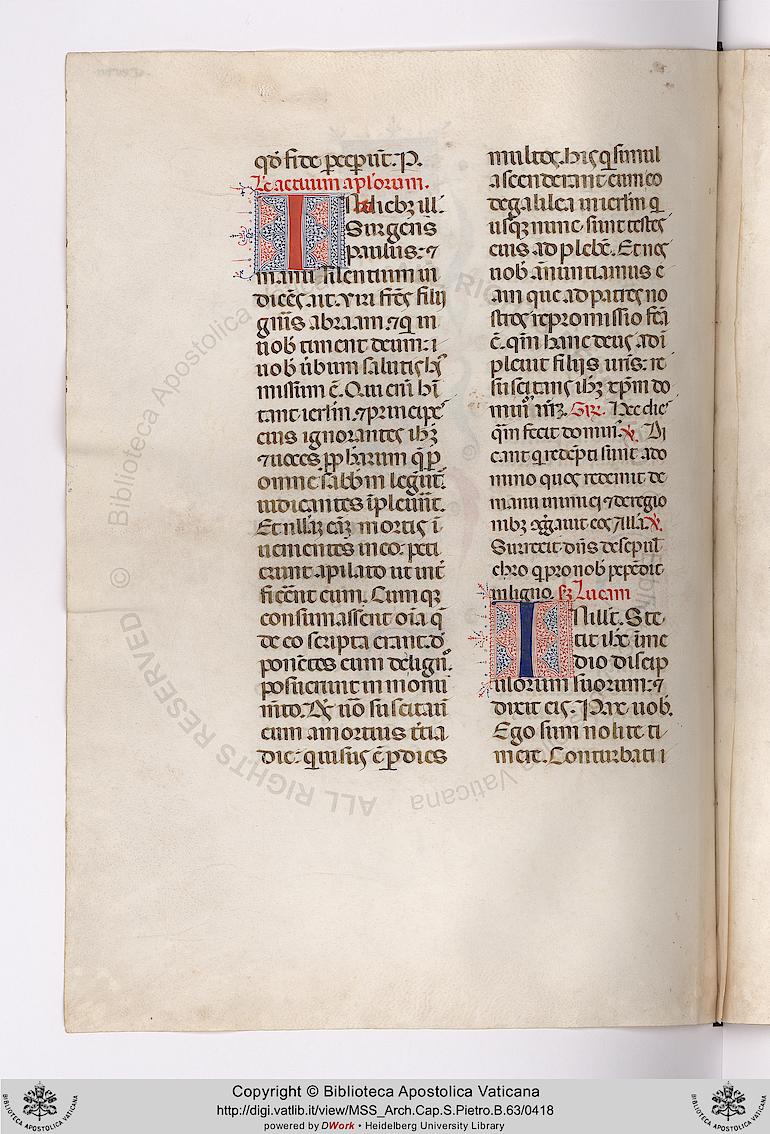 qd̄ fide p̄cep̄unt. P.
Lc̄ actuum aplorum.
IN diebz ill'.
Surgens
paulus: ⁊
manu silentium in
dicēs, ait. Viri frēs filij
gn̄is abraam. ⁊ q̄ in
uob̄ timent deum: i
uob̄ ūbum salutis hꝰ
missum ē. Qui enī hi
tant ierl̄m. ⁊ principeˢ
eius ignorantes ihz̄
⁊ uoces pp̄harum q̄ p̄
omne sabb̄m legunt̄.
iudicantes īpleuer̄t.
Et nullaz cāz mortis ī
uenientes in eo: peti
erunt a pilato ut int̄
ficēnt eum. Cumqz
consumassent oīa q̄
de eo scripta erant. d̄
ponētes eum de lign̄.
posuerunt in monu
m̄to. Dꝰ uō suscitaū
eum a mortuis t̄tia
die: qui uisus ē p̄ dies
multos. his q̄ simul
ascenderant cum eo
de galilea in ierl̄m q̄
usqz nunc sunt testes
eius ad plebē. Et nos
uob̄ ānuntiamus e
am que ad patres no
stros repromissio fc̄a
ē. qm̄ hanc deus adī
pleuit filijs ur̄is: re
suscitans ihz̄ xp̄m do
minū nr̄z. Gr̄. Hec dieˢ
q̄m fecit domin'. V̄. Di
cant q̄ redēpti sunt a do
mino quos redemit de
manu inimici ⁊ de regio
nibz ǥgauit eos. All'a. V̄.
Surrexit dn̄s de sepul
chro q̄ pro nob̄ pepēdit
in ligno. Sz̄ Lucam
IN ill'. t̄. Ste
tit ihc̄ ī me
dio discip
ulorum suorum: ⁊
dixit eis. Pax uob̄.
Ego sum nolite ti
mere. Conturbati i
© Biblioteca Apostolica Vaticana
ALL RIGHTS RESERVED
Copyright © Biblioteca Apostolica Vaticana
http://digi.vatlib.it/view/MSS_Arch.Cap.S.Pietro.B.63/0418
powered by DWork • Heidelberg University Library
BIBLIOTECA APOSTOLICA VATICANA
BIBLIOTECA APOSTOLICA VATICANA